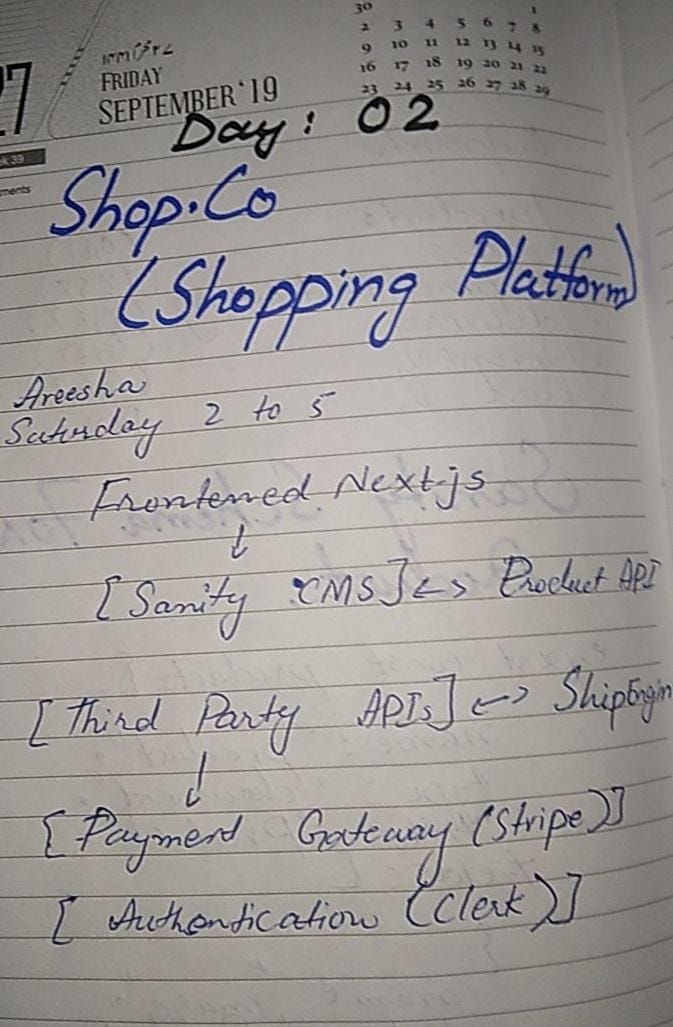 30 1
2 3 4 5 6 7 8
9 10 11 12 13 14 15
16 17 18 19 20 21 22
23 24 25 26 27 28 29
27
FRIDAY
SEPTEMBER'19
Day: 02
Shop.Co
(Shopping Platform)
Areesha
Saturday 2 to 5
Frontened Next.js
↓
[Sanity CMS] <-> Product API
[Third Party APIs] <-> ShipEngin
↓
[Payment Gateway (Stripe)]
[Authentication (Clerk)]